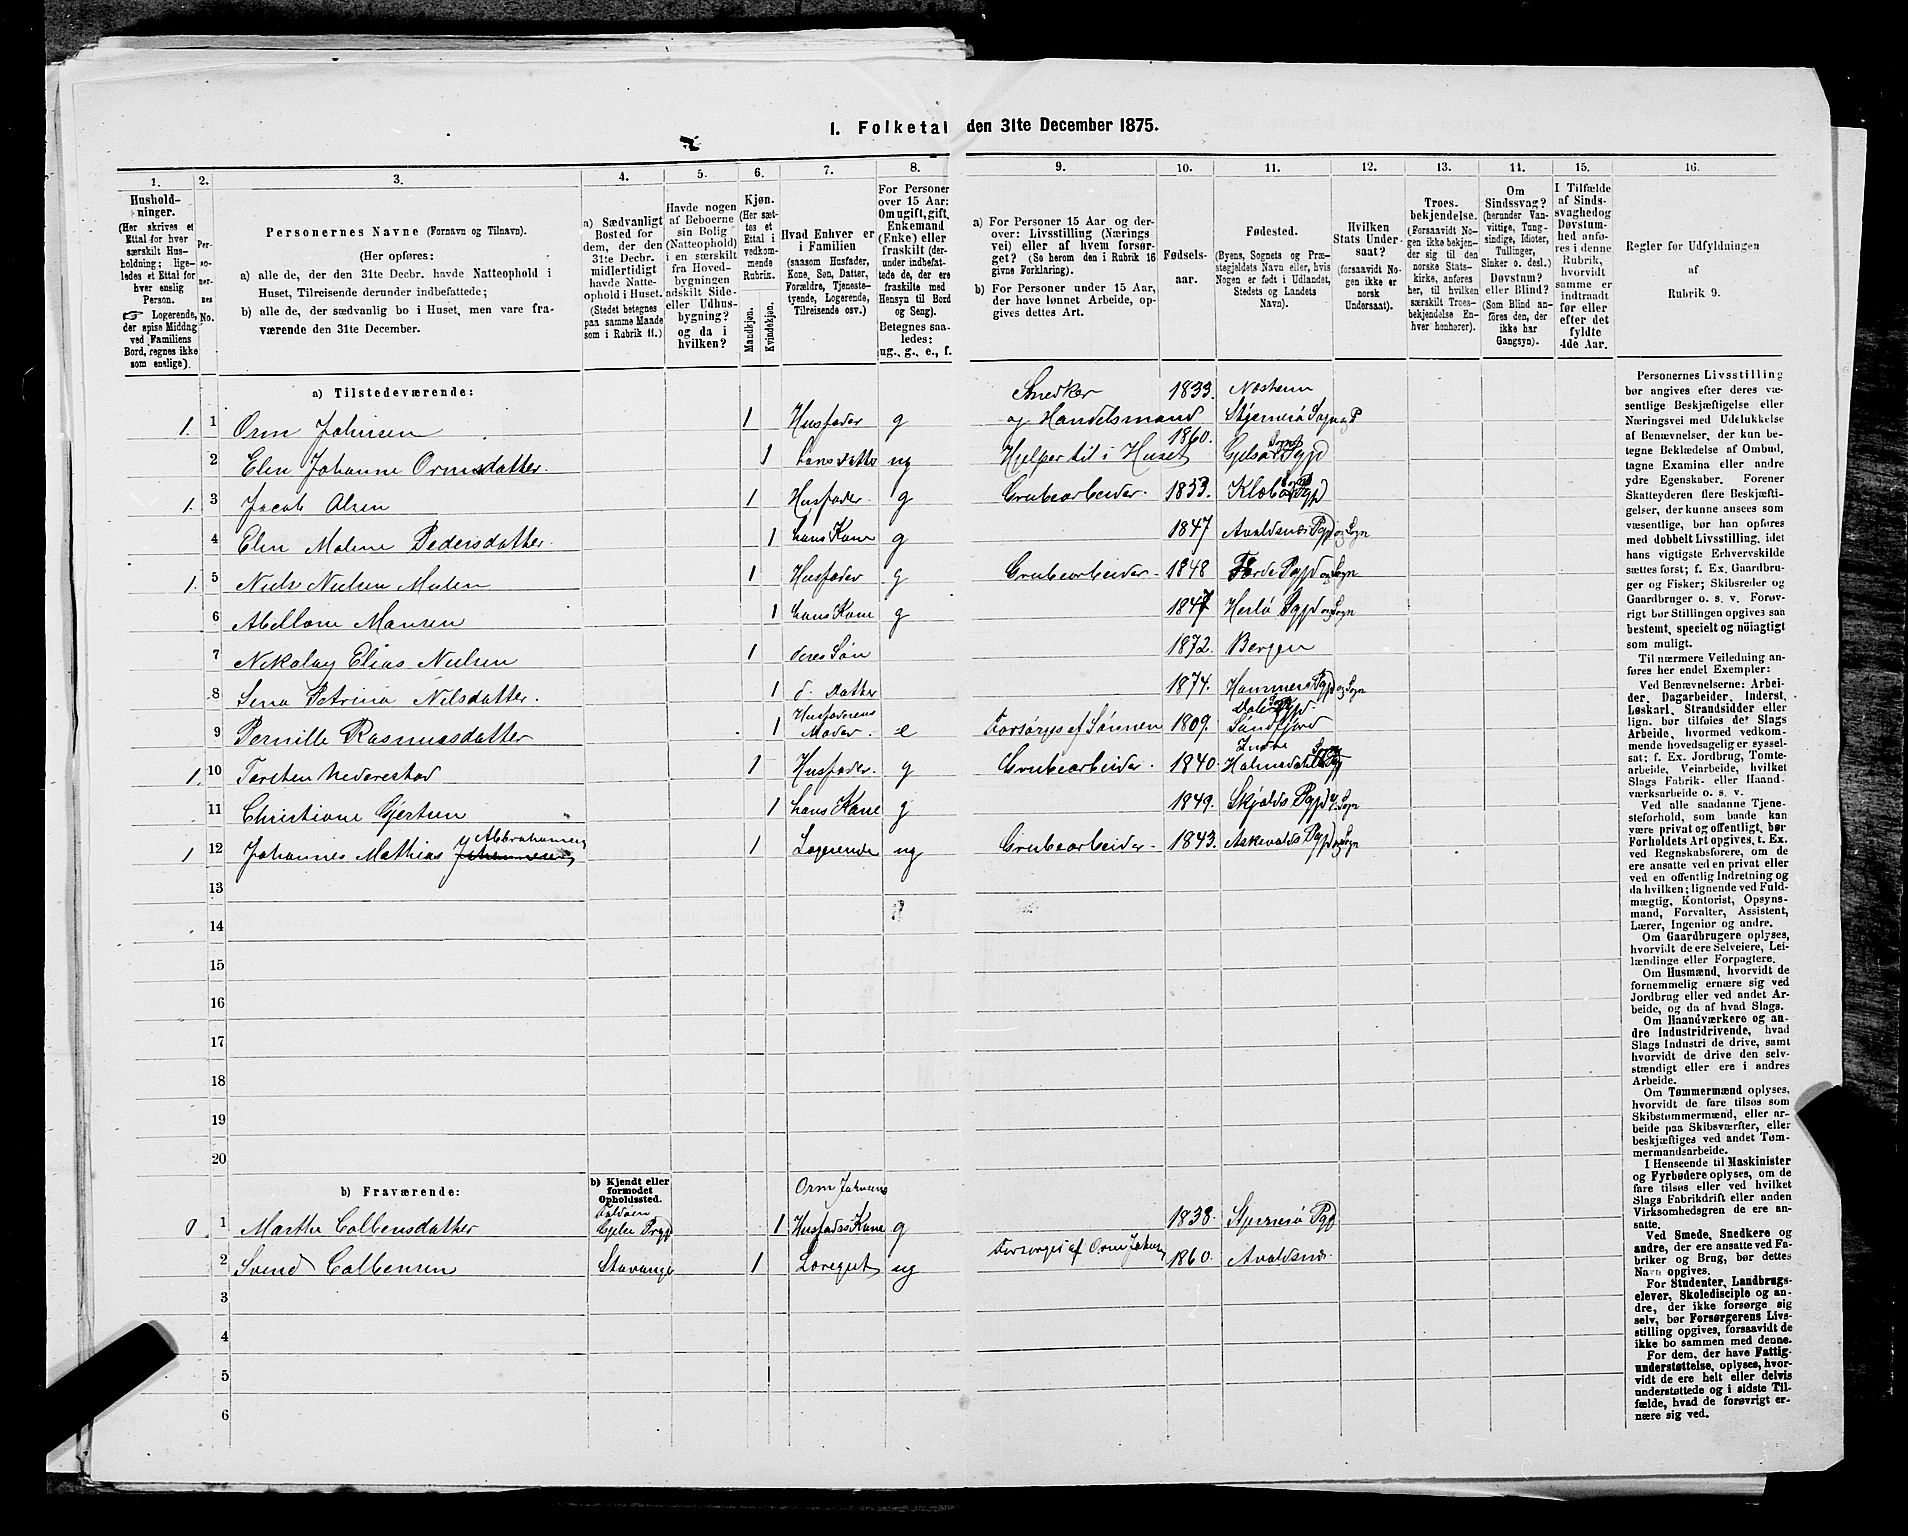 I. Folketal den 31te December 1875.
1.
2.
3.
4.
5.
6.
7.
8.
9.
10.
11.
12.
13.
11.
15.
16.
Hushold-
ninger.
(Her skrives et
Ettal for hver
særskilt Hus-
holdning; lige-
ledes et Ettal for
hver enslig
Person.
☞ Logerende,
der spise Middag
ved Familiens
Bord, regnes ikke
som enslige).
Per-
so-
ner-
nes
No.
Personernes Navne (Fornavn og Tilnavn).
(Her opføres:
a) alle de, der den 31te Decbr. havde Natteophold i
Huset, Tilreisende derunder indbefattede;
b) alle de, der sædvanlig bo i Huset, men vare fra-
værende den 31te December.
a) Sædvanligt
Bosted for
dem, der den
31te Decbr.
midlertidigt
havde Natte-
ophold i Huset.
(Stedet betegnes
paa samme Maade
som i Rubrik 11.)
Havde nogen
af Beboerne
sin Bolig
(Natteophold)
i en særskilt
fra Hoved-
bygningen
adskilt Side-
eller Udhus-
bygning?
og da i
hvilken?
Kjøn.
(Her sæt-
tes et
Ettal i
vedkom-
mende
Rubrik.
Mandkjøn.
Kvindekjøn.
Hvad Enhver er
i Familien
(saasom Husfader,
Kone, Søn, Datter,
Forældre, Tjeneste-
tyende, Logerende,
Tilreisende osv.)
For Personer
over 15 Aar:
Om ugift, gift,
Enkemand
(Enke) eller
fraskilt (der-
under indbefat-
tede de, der ere
fraskilte med
Hensyn til Bord
og Seng).
Betegnes saa-
ledes:
ug., g., e., f.
a) For Personer 15 Aar og der-
over: Livsstilling (Nærings
vei) eller af hvem forsør-
get? (Se herom den i Rubrik 16
givne Forklaring).
b) For Personer under 15 Aar,
der have lønnet Arbeide, op-
gives dettes Art.
Fødsels-
aar.
Fødested.
(Byens, Sognets og Præ-
stegjeldets Navn eller, hvis
Nogen er født i Udlandet,
Stedets og Landets
Navn).
Hvilken
Stats Under-
saat?
(forsaavidt No-
gen ikke er
norsk
Undersaat).
Troes-
bekjendelse.
(Forsaavidt No-
gen ikke bekjen-
der sig til den
norske Stats-
kirke, anføres
her, til hvilken
særskilt Troes-
bekjendelse En-
hver henhører).
Om
Sindssvag?
(herunder Van-
vittige, Tung-
sindige, Idioter,
Tullinger,
Sinker o. desl.)
Døvstum?
eller Blind?
(Som Blind an-
føres den, der
ikke har
Gangsyn).
I Tilfælde
af Sinds-
svaghedog
Døvstum-
hed anfø-
res i denne
Rubrik,
hvorvidt
samme er
indtraadt
før eller
efter det
fyldte
4de Aar.
Regler for Udfyldningen
af
Rubrik 9.
a) Tilstedeværende:
1. 1 Orm Johnsen 1 Husfader g Snedker og Handelsmand 1833. Næsheim Stjernerø Sogn og P
2 Elen Johanne Ormsdatter. 1 hans datter ug Hjelper til i Huset 1860.
1. 3 Jacob Olsen 1 Husfader. g Grubearbeider. 1853. Klæbo Sogn Pgjd
4 Elen Malene Pedersdatter. 1 hans Kone g 1847 Avaldsnæs Pgjd og Sogn
1. 5 Niels Nielsen Mulen 1 Husfader g Grubearbeider. 1848 Førde Pgjd og Sogn
6 Abellone Mansen 1 hans Kone g 1847 Herlø Pgjd og Sogn
7 Nikolay Elias Nielsen 1 deres Søn 1872. Bergen
8 Sena Petrina Nilsdatter. 1 d. Datter 1874. Hammers Pgjd og Sogn
9 Pernille Rasmusdatter 1 Husfaderens Moder. e Forsørges af Sønnen 1809. Søndfjord
1. 10 Torsten Nederestad 1 Husfader. g Grubearbeider. 1840 Indre Holmedahl
11 Christiane Gjertsen 1 hans Kone g 1849. Skjolds Pgjd og Sogn
1 12 Johannes Mathias Abbrahamsen 1 Logerende ug Grubearbeider. 1843. Askevolds Pgjd og Sogn
13
14
15
16
17
18
19
20
b) Fraværende:
b) Kjendt eller
formodet
Opholdssted.
0 1 Marthe Colbensdatter 1 Orm Johnsens Husfaders Kone g 1838. Stjernerø Pgjd
2 Svend Colbensen Stavanger 1 ug Forsørges af Orm Johnsen 1860. Avaldsnæs
3
4
5
6
Personernes Livsstilling
bør angives efter deres væ-
sentlige Beskjæftigelse eller
Næringsvei med Udelukkelse
af Benævnelser, der kun be-
tegne Beklædelse af Ombud,
tagne Examina eller andre
ydre Egenskaber. Forener
Skatteyderen flere Beskjæfti-
gelser, der kunne ansees som
væsentlige, bør han opføres
med dobbelt Livsstilling, idet
hans vigtigste Erhvervskilde
sættes først; f. Ex. Gaardbru-
ger og Fisker; Skibsreder og
Gaardbruger o. s. v. Forøv-
rigt bør Stillingen opgives saa
bestemt, specielt og nöiagtigt
som muligt.
Til nærmere Veiledning an-
føres her endel Exempler:
Ved Benævnelserne: Arbei-
der, Dagarbeider, Inderst,
Løskarl, Strandsidder eller
lign. bør tilføies det Slags
Arbeide, hvormed vedkom-
mende hovedsagelig er syssel-
sat; f. Ex. Jordbrug, Tomte-
arbeide, Veiarbeide, hvilket
Slags Fabrik- eller Haand-
værksarbeide o. s. v.
Ved alle saadanne Tjene-
steforhold, som baade kan
være privat og offentligt, bør
Forholdets Art opgives, t. Ex.
ved Regnskabsførere, om de
ere ansatte ved en privat eller
ved en offentlig Indretning og
da hvilken; lignende ved Fuld-
mægtig, Kontorist, Opsyns-
mand, Forvalter, Assistent,
Lærer, Ingeniør og andre.
Om Gaardbrugere oplyses,
hvorvidt de ere Selveiere, Lei-
lændinge eller Forpagtere.
Om Husmænd, hvorvidt de
fornemmelig ernære sig ved
Jordbrug eller ved andet Ar-
beide, og da af hvad Slags.
Om Haandværkere og an-
dre Industridrivende, hvad
Slags Industri de drive, samt
hvorvidt de drive den selv-
stændigt eller ere i andres
Arbeide.
Om Tømmermænd oplyses,
hvorvidt de fare tilsøs som
Skibstømmermænd, eller ar-
beide paa Skibsværfter, eller
beskjæftiges ved andet Tøm-
mermandsarbeide.
I Henseende til Maskinister
og Fyrbødere oplyses, om de
fare tilsøs eller ved hvilket
Slags Fabrikdrift eller anden
Virksomhedsgren de ere an-
satte.
Ved Smede, Snedkere og
andre, der ere ansatte ved Fa-
briker og Brug, bør dettes
Navn opgives.
For Studenter, Landbrugs-
elever, Skoledisciple og an-
dre, der ikke forsørge sig
selv, bør Forsørgerens Livs-
stilling opgives, forsaavidt de
ikke bo sammen med denne.
For dem, der have Fattig-
understøttelse, oplyses, hvor-
vidt de ere helt eller delvis
understøttede og i sidste Til-
fælde, hvad de forøvrigt er-
nære sig ved.